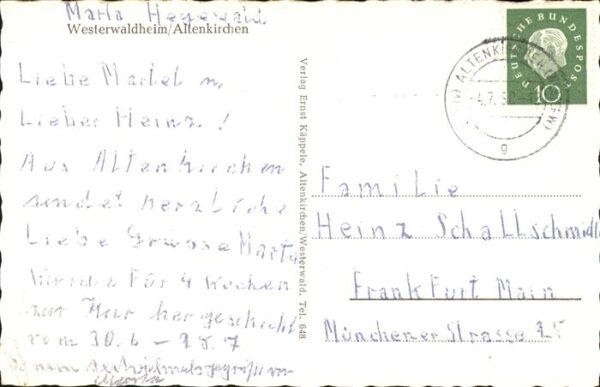 Marta Hegewald
Westerwaldheim/Altenkirchen
Liebe Martel u.
Lieber Heinz!
Aus Altenkirchen
sendet herzliche
Liebe Grüsse Marta
Wurde Für 4 Wochen
zur Kur her geschickt
vom 30.6 – 28.7
Verlag Ernst Käppele, Altenkirchen/Westerwald, Tel. 648
DEUTSCHE BUNDESPOST
10
ALTENKIRCHEN
g
Familie
Heinz Schallschmidt
Frankfurt Main
Münchener Strasse